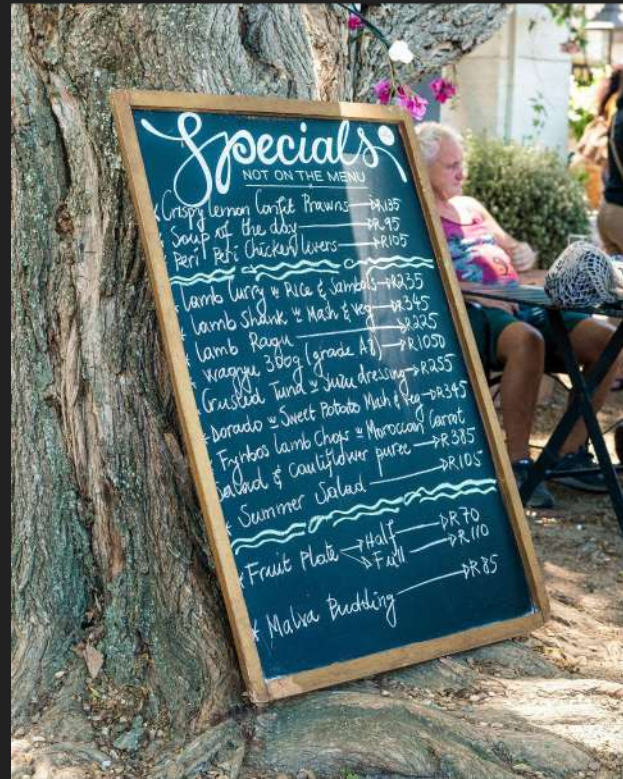 Specials
NOT ON THE MENU
* Crispy lemon Confit Prawns → R135
* Soup of the day → R95
* Peri Peri Chicken livers → R105
* Lamb Curry w Rice & Sambals → R235
* Lamb Shank w Mash & Veg → R345
* Lamb Ragu → R225
* Wagyu 300g (grade A8) → R1050
* Crusted Tuna w Juzu dressing → R255
* Dorado w Sweet Potato Mash & Veg → R345
* Fynbos Lamb Chops w Moroccan Carrot
Salad & Cauliflower puree → R385
* Summer Salad → R105
* Fruit Plate → Half → R70
→ Full → R110
* Malva Pudding → R85